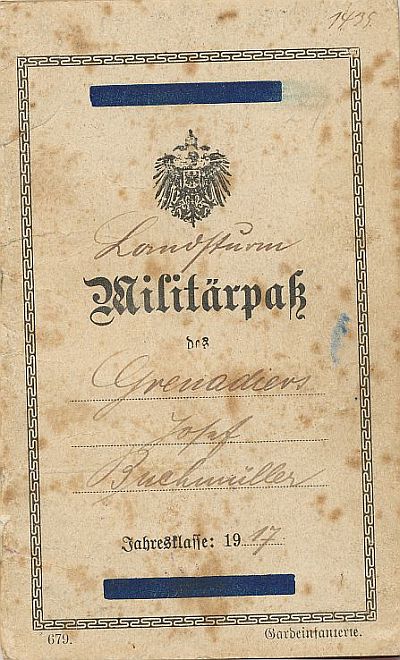 1435.
Landsturm
Militärpaß
des
Grenadiers
Josef
Buchmüller
Jahresklasse: 1917
679.
Gardeinfanterie.